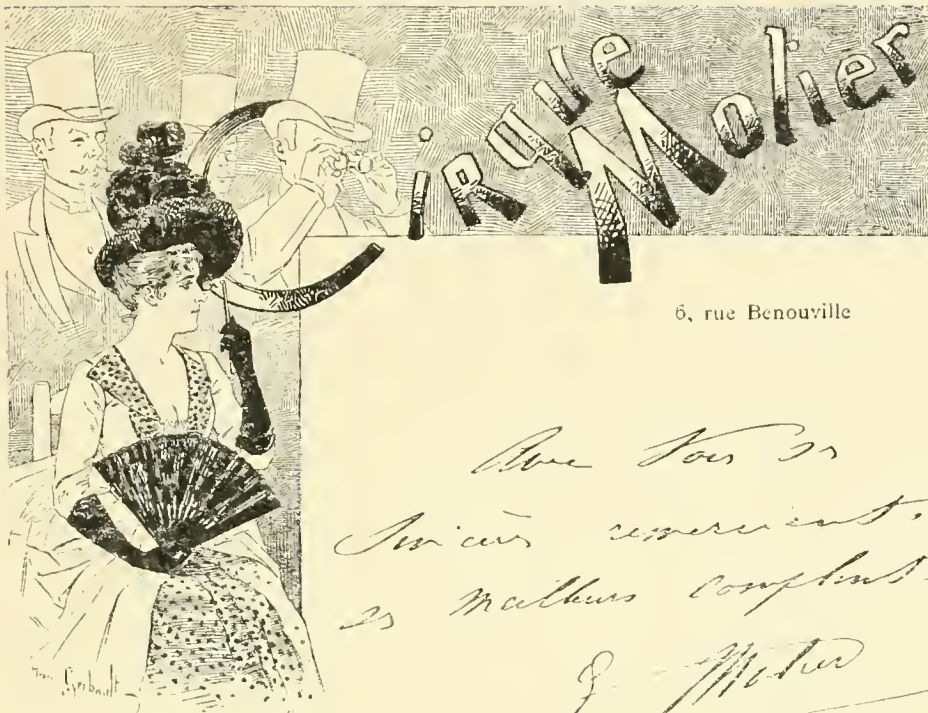 Cirque Molier
6, rue Benouville
Avec tous ses
sincères remerciements,
ses meilleurs compliments.
E Molier
Gerbault